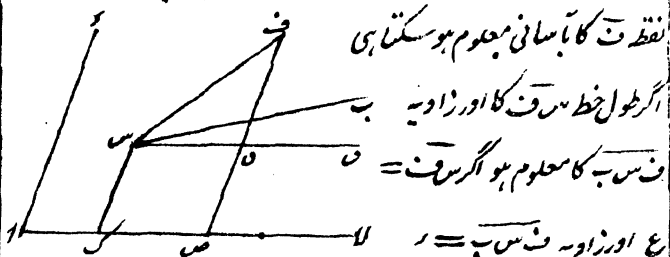 نقطہ ف کا بآسانی معلوم ہو سکتا ہی
اگر طول خط س ف کا اور زاویہ
ف س ب کا معلوم ہو اگر س ف =
ع اور زاویہ ف س ب = ء
ء
ف
ب
س
ن
ا
ص
لا